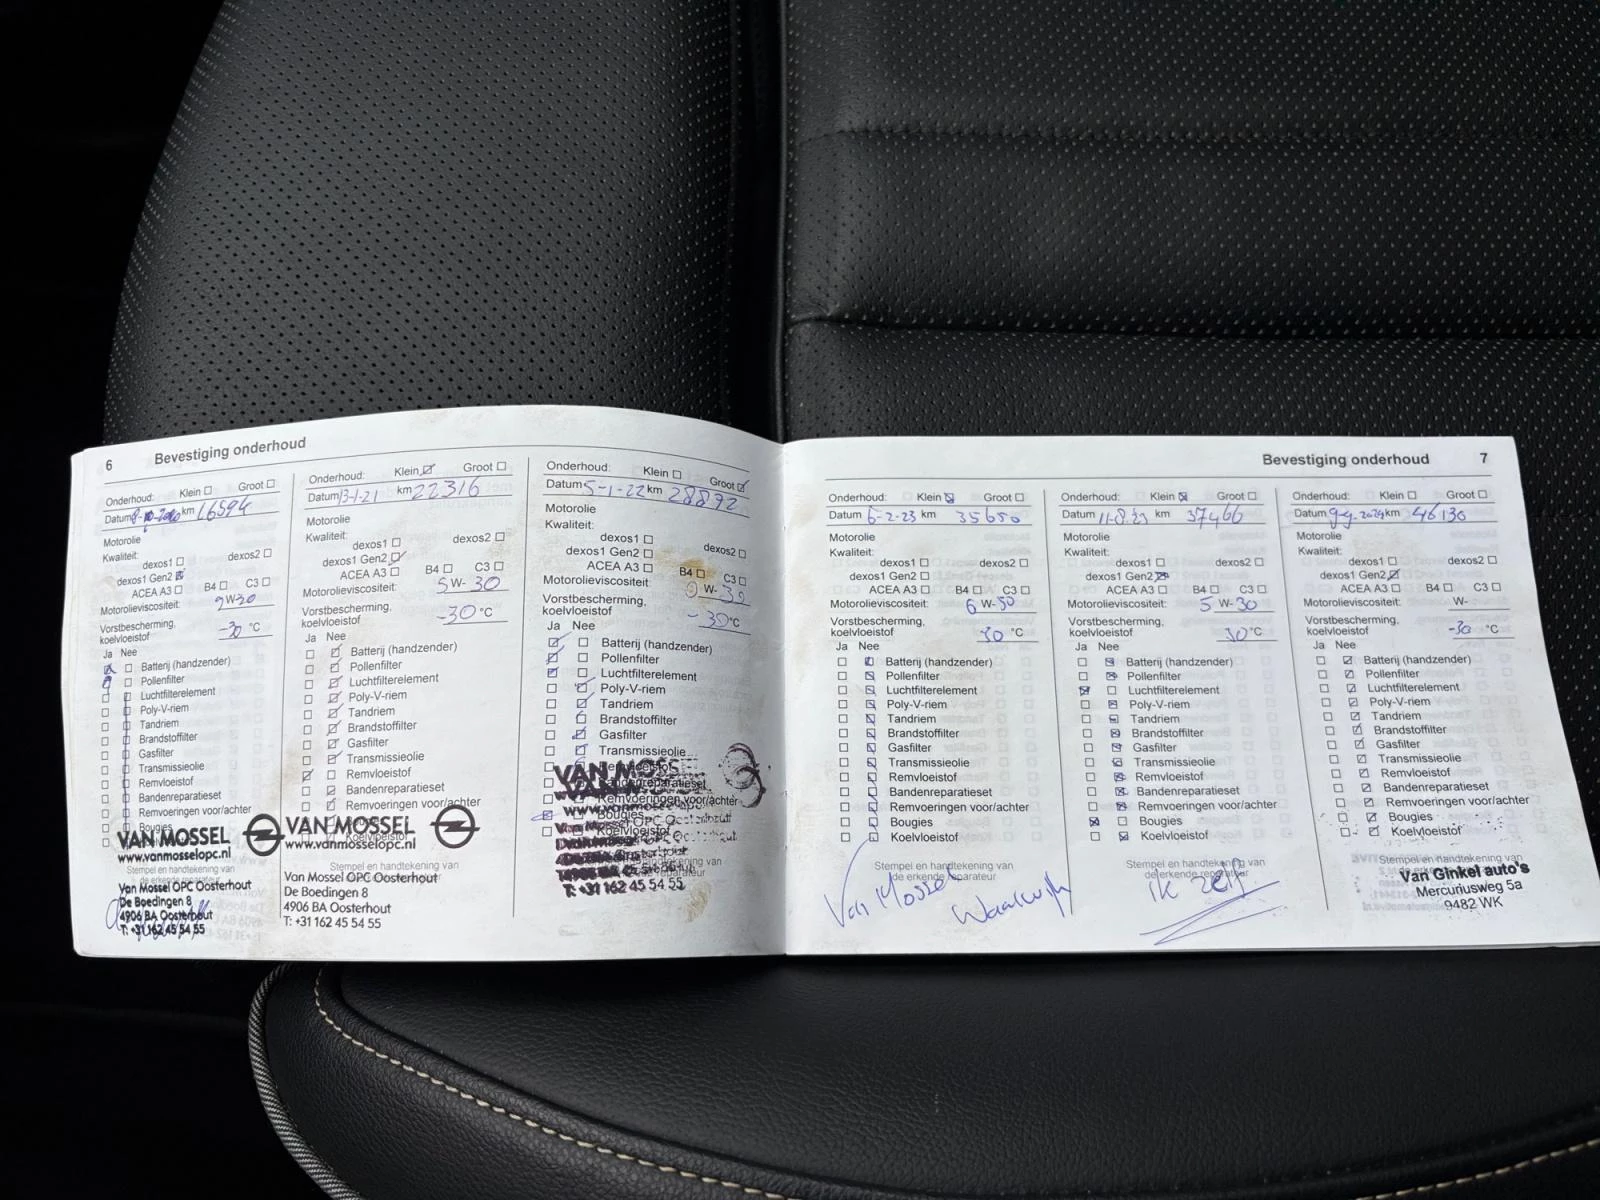 6 Bevestiging onderhoud
Onderhoud: Klein Groot
Datum km 16594
Motorolie
Kwaliteit:
dexos1 dexos2
dexos1 Gen2
ACEA A3 B4 C3
Motorolieviscositeit: W-30
Vorstbescherming,
koelvloeistof -30 °C
Ja Nee
Batterij (handzender)
Pollenfilter
Luchtfilterelement
Poly-V-riem
Tandriem
Brandstoffilter
Gasfilter
Transmissieolie
Remvloeistof
Bandenreparatieset
Remvoeringen voor/achter
Bougies
VAN MOSSEL
www.vanmosselopc.nl
Stempel en handtekening van
de erkende reparateur
Van Mossel OPC Oosterhout
De Boedingen 8
4906 BA Oosterhout
T: +31 162 45 54 55
Onderhoud: Klein Groot
Datum 13-1-21 km 22316
Motorolie
Kwaliteit:
dexos1 dexos2
dexos1 Gen2
ACEA A3 B4 C3
Motorolieviscositeit: 5 W- 30
Vorstbescherming,
koelvloeistof -30 °C
Ja Nee
Batterij (handzender)
Pollenfilter
Luchtfilterelement
Poly-V-riem
Tandriem
Brandstoffilter
Gasfilter
Transmissieolie
Remvloeistof
Bandenreparatieset
Remvoeringen voor/achter
Bougies
Koelvloeistof
VAN MOSSEL
www.vanmosselopc.nl
Stempel en handtekening van
de erkende reparateur
Van Mossel OPC Oosterhout
De Boedingen 8
4906 BA Oosterhout
T: +31 162 45 54 55
Onderhoud: Klein Groot
Datum 5-1-22 km 28892
Motorolie
Kwaliteit:
dexos1 dexos2
dexos1 Gen2
ACEA A3 B4 C3
Motorolieviscositeit: 0 W- 30
Vorstbescherming,
koelvloeistof - 30 °C
Ja Nee
Batterij (handzender)
Pollenfilter
Luchtfilterelement
Poly-V-riem
Tandriem
Brandstoffilter
Gasfilter
Transmissieolie
Remvloeistof
Bandenreparatieset
Remvoeringen voor/achter
Bougies
Koelvloeistof
VAN MOSS
T: +31 162 45 54 55
Bevestiging onderhoud 7
Onderhoud: Klein Groot
Datum 6-2-23 km 35650
Motorolie
Kwaliteit:
dexos1 dexos2
dexos1 Gen2
ACEA A3 B4 C3
Motorolieviscositeit: W-30
Vorstbescherming,
koelvloeistof 30 °C
Ja Nee
Batterij (handzender)
Pollenfilter
Luchtfilterelement
Poly-V-riem
Tandriem
Brandstoffilter
Gasfilter
Transmissieolie
Remvloeistof
Bandenreparatieset
Remvoeringen voor/achter
Bougies
Koelvloeistof
Stempel en handtekening van
de erkende reparateur
Van Mossel
Waalwijk
Onderhoud: Klein Groot
Datum 11-8-23 km 37466
Motorolie
Kwaliteit:
dexos1 dexos2
dexos1 Gen2
ACEA A3 B4 C3
Motorolieviscositeit: 5 W-30
Vorstbescherming,
koelvloeistof 30 °C
Ja Nee
Batterij (handzender)
Pollenfilter
Luchtfilterelement
Poly-V-riem
Tandriem
Brandstoffilter
Gasfilter
Transmissieolie
Remvloeistof
Bandenreparatieset
Remvoeringen voor/achter
Bougies
Koelvloeistof
Stempel en handtekening van
de erkende reparateur
ik zelf
Onderhoud: Klein Groot
Datum 9-9-2024 km 46130
Motorolie
Kwaliteit:
dexos1 dexos2
dexos1 Gen2
ACEA A3 B4 C3
Motorolieviscositeit: W-
Vorstbescherming,
koelvloeistof -30 °C
Ja Nee
Batterij (handzender)
Pollenfilter
Luchtfilterelement
Poly-V-riem
Tandriem
Brandstoffilter
Gasfilter
Transmissieolie
Remvloeistof
Bandenreparatieset
Remvoeringen voor/achter
Bougies
Koelvloeistof
Stempel en handtekening van
Van Ginkel auto's
Mercuriusweg 5a
9482 WK